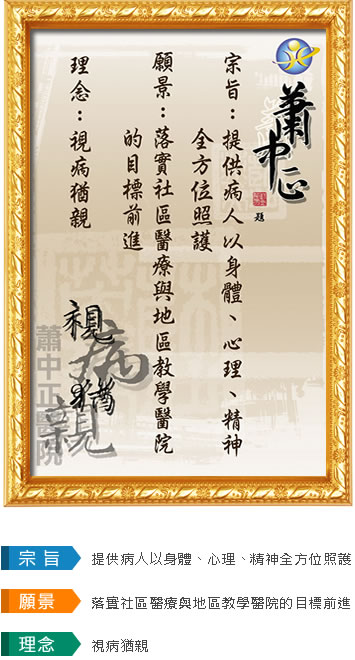 蕭中正
題
宗旨：提供病人以身體、心理、精神
全方位照護
願景：落實社區醫療與地區教學醫院
的目標前進
理念：視病猶親
視病猶親
蕭中正醫院
宗旨 提供病人以身體、心理、精神全方位照護
願景 落實社區醫療與地區教學醫院的目標前進
理念 視病猶親